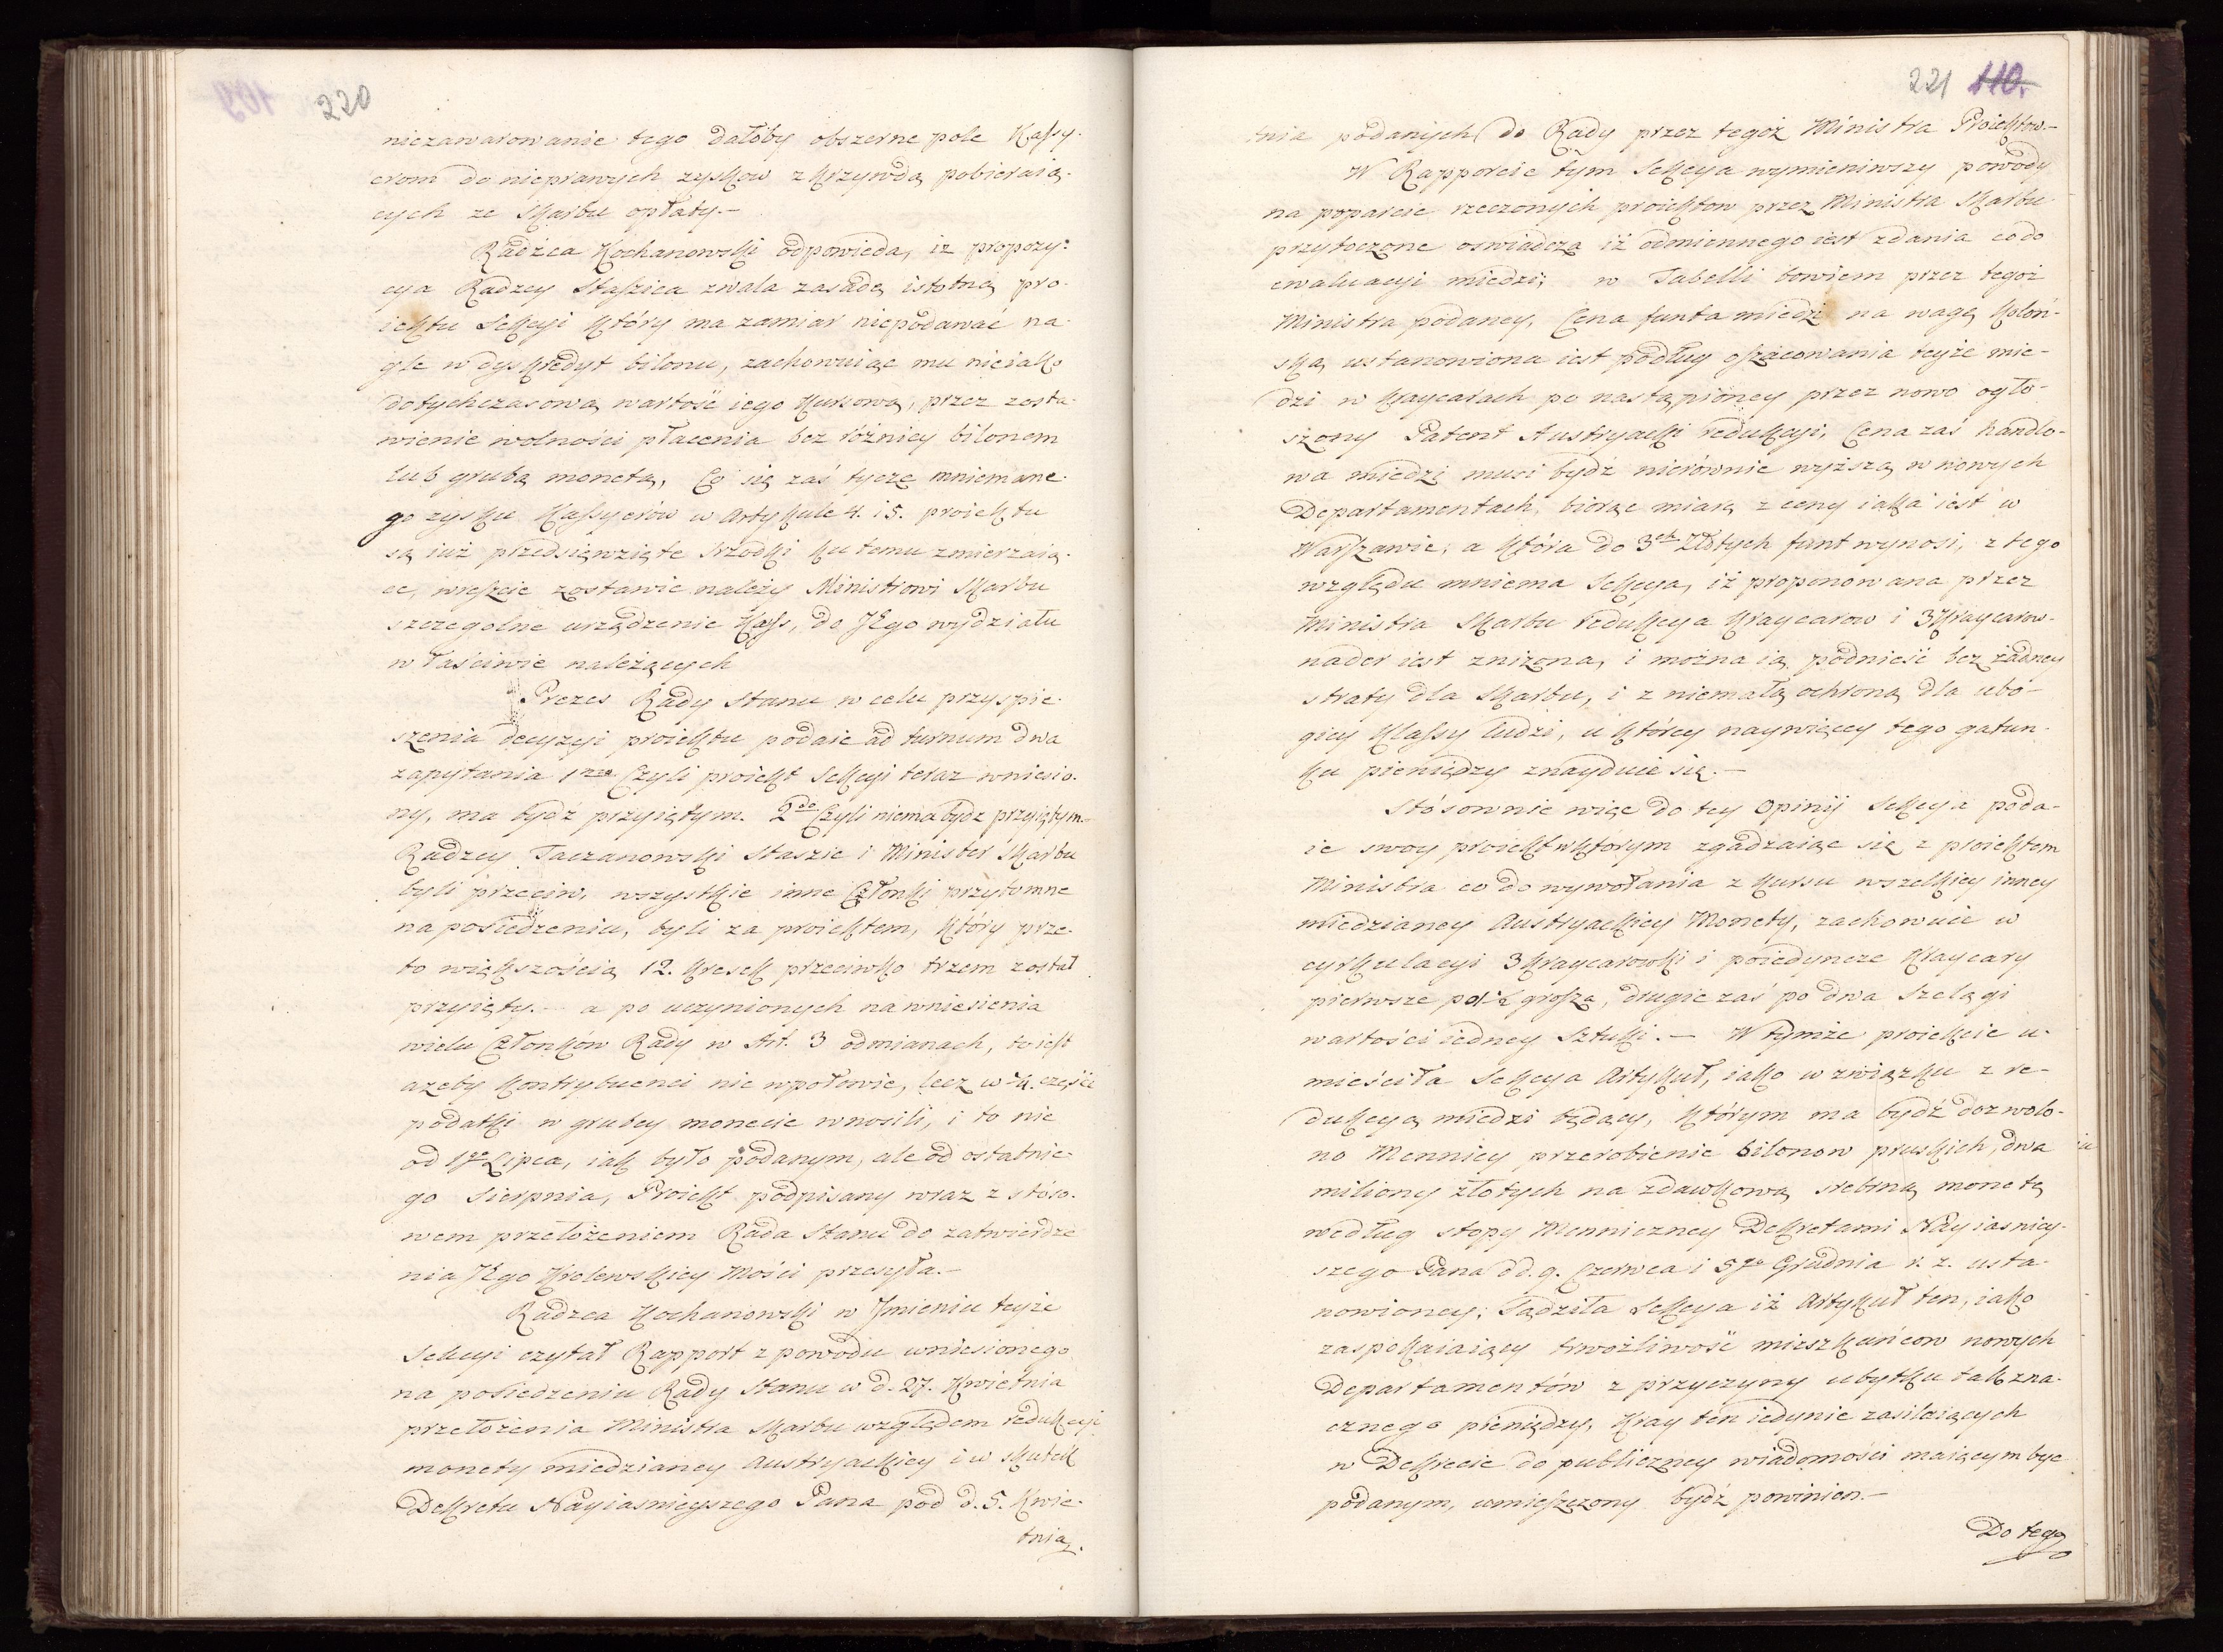 220
niezawarowanie tego dałoby obszerne pole Kassy-
erom do nieprawych zyskow z krzywdą pobieraią-
cych ze Skarbu opłaty.—
Radzca Kochanowski odpowieda, iz propozy-
cya Radzcy Staszica zwala zasadę istotną pro-
iektu Sekcyi który ma zamiar niepodawać na-
gle w dyskredyt bilonu, zachowuiąc mu nieiako
dotychczasową wartość iego kursową, przez zosta-
wienie wolności płacenia bez różnicy bilonem
lub grubą monetą, Co się zaś tycze mniemane-
go zysku Kassyerów w Artykule 4. i 5. proiektu
są iuż przedsięwzięte srzodki ku temu zmierzaią-
ce, wreszcie zostawic należy Ministrowi Skarbu
szczegolne urządzenie Kass, do JEgo wydziału
właściwie należących
Prezes Rady Stanu w celu przyspie-
szenia decyzyi proiektu podaie ad turnum dwa
zapytania 1mo Czyli proiekt Sekcyi teraz wniesio-
ny, ma bydź przyiętym. 2do Czyli niema bydz przyiętym.
Radzcy Taczanowski Staszic i Minister Skarbu
byli przeciw, wszystkie inne Członki przytomne
na posiedzeniu, byli za proiektem, który prze-
to większością 12. kresek przeciwko trzem został
przyięty.— a po uczynionych na wniesienia
wielu Członków Rady w Art. 3 odmianach, to iest
azeby kontrybuenci nie wpołowie, lecz w ¼. części
podatki w grubey monecie wnosili, i to nie
od 1go Lipca, iak było podanym, ale od ostatnie-
go Sierpnia, Proiekt podpisany wraz z stóso-
wem przełożeniem Rada Stanu do zatwierdze
nia JEgo Krolewskiey Mości przesyła.—
Radzca Kochanowski w Jmieniu teyże
Sekcyi czytał Rapport z powodu wniesionego
na posiedzeniu Rady Stanu w d. 27. Kwietnia
przełożenia Ministra Skarbu względem redukcyi
monety miedzianey Austryackiey i w skutek
Dekretu Nayiasnieyszego Pana pod d. 5. Kwie-
tnia
221 110.
tnia podanych do Rady przez tegoż Ministra Proiektow—
W Rapporcie tym Sekcya wymieniwszy powody
na poparcie rzeczonych proiektow przez Ministra Skarbu
przytoczone oswiadcza iż odmiennego iest zdania co do
ewaluacyi miedzi; w Tabelli bowiem przez tegoż
Ministra podaney, Cena funta miedzi na wagę Koloń-
ską ustanowiona iest podług oszacowania teyże mie-
dzi w Kraycarach po nastąpioney przez nowo ogło-
szony Patent Austryacki redukcyi, Cena zaś handlo-
wa miedzi musi bydź nierównie wyższą w nowych
Departamentach, biorąc miarę z ceny iaka iest w
Warszawie, a która do 3ch Złotych funt wynosi, z tego
względu mniema Sekcya, iż proponowana przez
Ministra Skarbu redukcya Kraycarow i 3 Kraycarow-
nader iest zniżoną, i można ią podnieść bez żadney
straty dla Skarbu, i z niemałą ochroną dla ubo-
giey klassy ludzi, u którey naywięcey tego gatun-
ku pieniędzy znayduie się.—
Stósownie więc do tey Opinij Sekcya poda-
ie swoy proiekt w którym zgadzaiąc się z proiektem
Ministra co do wywołania z kursu wszelkiey inney
miedzianey Austryackiey Monety, zachowuie w
cyrkulacyi 3 Kraycarowki i poiedyncze Kraycary
pierwsze po 1½ grosza, drugie zaś po dwa szelągi
wartości iedney Sztuki.— W tymże proiekcie u-
mieściła Sekcya Artykuł, iako w związku z re-
dukcyą miedzi będący, którym ma bydź dozwolo-
no Mennicy przerobienie bilonow pruskich, dwa
miliony złotych na zdawkową srebrną monetę
według stopy Menniczney Dekretami Nayiasniey-
szego Pana d d. 9. Czerwca i 5go Grudnia r. z. usta-
nowioney; Sądziła Sekcya iż Artykuł ten, iako
zaspokaiaiący trwożliwość mieszkańcow nowych
Departamentów z przyczyny ubytku tak zna-
cznego pieniędzy, Kray ten iedynie zasilaiących
w Dekrecie do publiczney wiadomości maiącym byc
podanym, umieszczony bydź powinien.—
Do tego